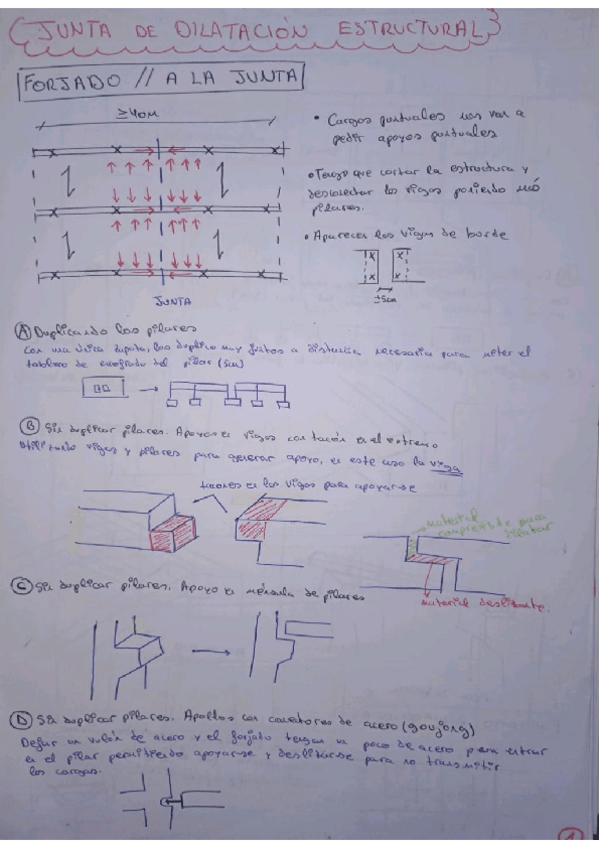 JUNTA DE DILATACIÓN ESTRUCTURAL
FORJADO // A LA JUNTA
≥40M
JUNTA
• Cargas puntuales nos van a
pedir apoyos puntuales
• Tengo que cortar la estructura y
desconectar las vigas poniendo
pilares.
• Aparecen las vigas de borde
±5cm
A Duplicando los pilares
Con una única zapata, los duplico muy juntos a distancia necesaria para meter el
tablero de encofrado del pilar (5cm)
B Sin duplicar pilares. Apoyar vigas con tacón en el extremo
Utilizando vigas y pilares para generar apoyo, en este caso la viga
tacones en las vigas para apoyarse
material
compresible para
dilatar
material deslizante.
C Sin duplicar pilares. Apoyo en ménsula de pilares
D Sin duplicar pilares. con conectores de acero (goujons)
Dejar un de acero y el forjado tengan un poco de acero para entrar
en el pilar permitiendo apoyarse y deslizarse para no transmitir
las cargas.
1